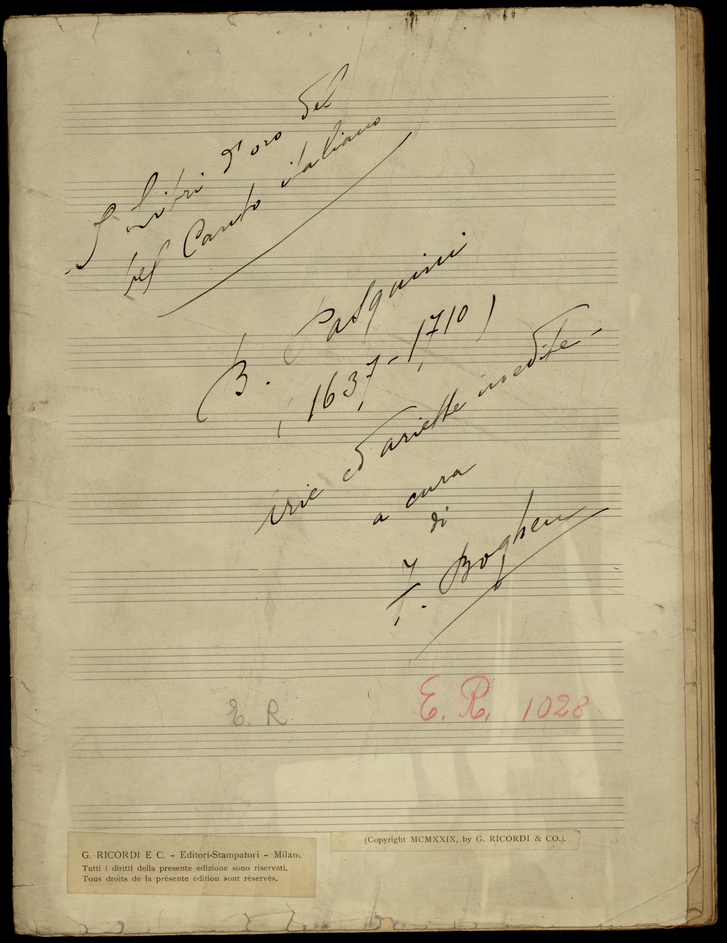 I Libri d'oro del
bel Canto italiano
B. Pasquini
(1637-1710)
Arie ed ariette inedite-
a cura
di
F. Boghen
E. R.
E. R. 1028
(Copyright MCMXXIX, by G. RICORDI & CO.).
G. RICORDI E C. - Editori-Stampatori - Milano.
Tutti i diritti della presente edizione sono riservati.
Tous droits de la présente édition sont réservés.